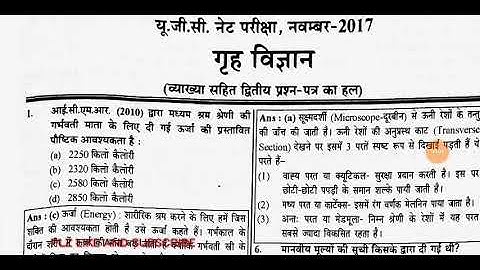 यू.जी.सी. नेट परीक्षा, नवम्बर-2017
गृह विज्ञान
(व्याख्या सहित द्वितीय प्रश्न-पत्र का हल)
1. आई.सी.एम.आर. (2010) द्वारा मध्यम श्रम श्रेणी की
गर्भवती माता के लिए दी गई ऊर्जा की प्रस्तावित
पौष्टिक आवश्यकता है :
(a) 2250 किलो कैलोरी
(b) 2320 किलो कैलोरी
(c) 2580 किलो कैलोरी
(d) 2850 किलो कैलोरी
Ans : (c) ऊर्जा (Energy) : शारीरिक श्रम करने के लिए हमें जिस
शक्ति की आवश्यकता होती है उसे ऊर्जा कहते हैं। गर्भकाल के
दौरान
PLZ LIKE AND SUBSCRIBE
गर्भवती स्त्री के
Ans : (a) सूक्ष्मदर्शी (Microscope-दूरबीन) में ऊनी रेशों के तन्तु
की जाँच की जाती है। ऊनी रेशों की अनुप्रस्थ काट (Transverse
Section) देखने पर इसमें 3 परतें स्पष्ट रूप से दिखाई पड़ती हैं
परते हैं–
(1) वाह्य परत या क्यूटिकल- सुरक्षा प्रदान करती है। इस पर
छोटी-छोटी पपड़ी के समान शल्कें पायी जाती है।
(2) मध्य परत या कार्टेक्स- इसमें रंग वर्णक मेलनिन पाया जाता है।
(3) अन्तः परत या मेडमूला- निम्न श्रेणी के रेशों में यह परत
सबसे ज्यादा विकसित रहता है।
6. मानवीय मूल्यों की सूची किसके द्वारा दी गई थी?